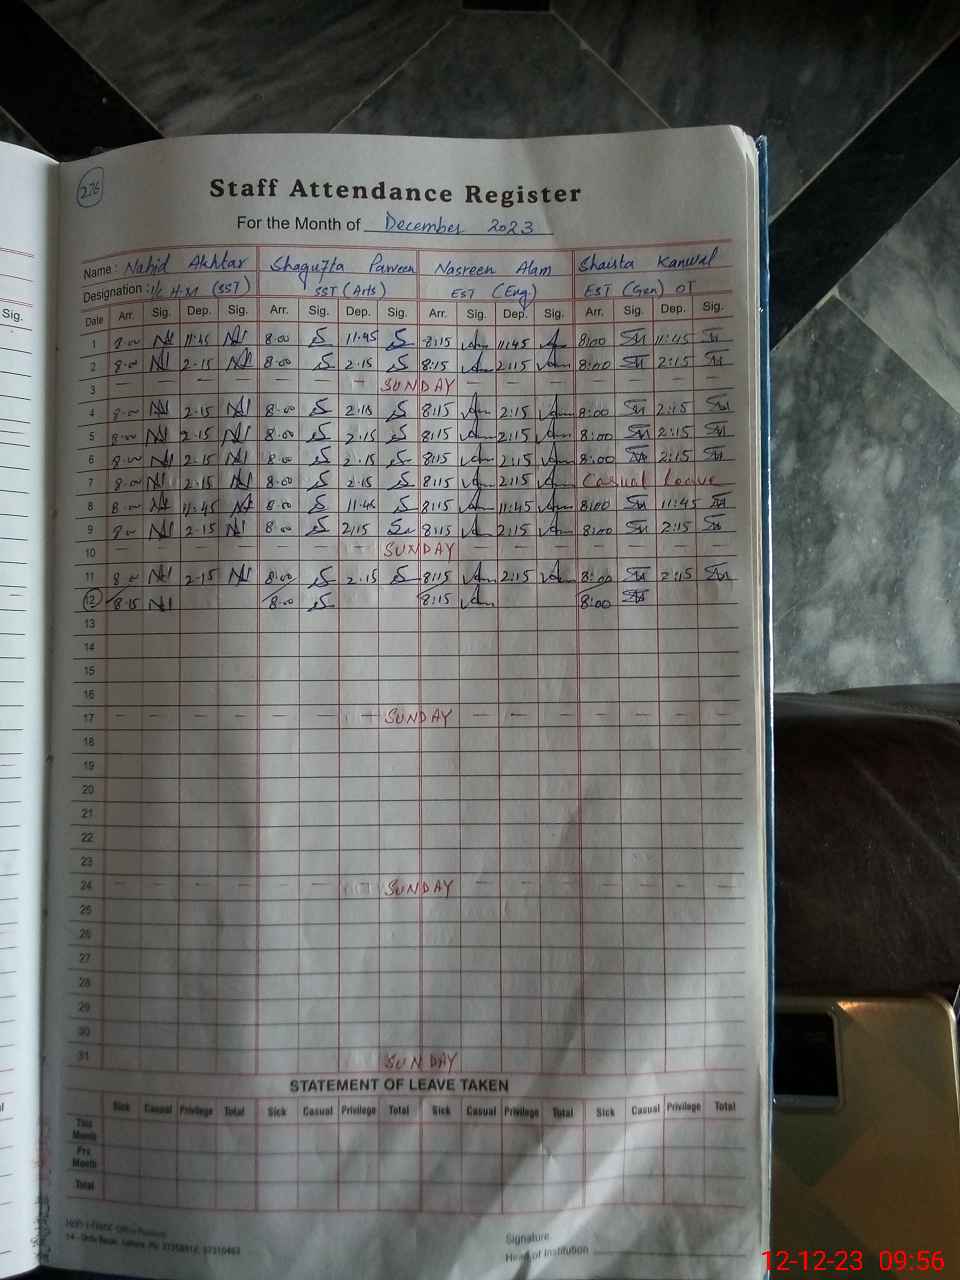 276
Staff Attendance Register
For the Month of December 2023
Name : Nahid Akhtar Shagufta Parveen Nasreen Alam Shaista Kanwal
Designation : I/C H.M (SST) SST (Arts) EST (Eng) EST (Gen) OT
Sig.
Date Arr. Sig. Dep. Sig. Arr. Sig. Dep. Sig. Arr. Sig. Dep. Sig. Arr. Sig. Dep. Sig.
1 8.00 11.45 8.00 11.45 8:15 11:45 8:00 11:45
2 8.00 2.15 8.00 2.15 8:15 2:15 8:00 2:15
3 — — — — — — — SUNDAY — — — — — — —
4 8.00 2.15 8.00 2.15 8:15 2:15 8:00 2:15
5 8.00 2.15 8.00 2.15 8:15 2:15 8:00 2:15
6 8.00 2.15 8.00 2.15 8:15 2:15 8:00 2:15
7 8.00 2.15 8.00 2.15 8:15 2:15 Casual Leave
8 8.00 11.45 8.00 11.45 8:15 11:45 8:00 11:45
9 8.00 2.15 8.00 2.15 8:15 2:15 8:00 2:15
10 — — — — — — — SUNDAY — — — — — — —
11 8.00 2.15 8:00 2.15 8:15 2:15 8:00 2:15
12 8.15 8.00 8:15 8:00
13
14
15
16
17 — — — — — — — SUNDAY — — — — — — —
18
19
20
21
22
23
24 — — — — — — — SUNDAY — — — — — — —
25
26
27
28
29
30
31 SUNDAY
STATEMENT OF LEAVE TAKEN
Sick Casual Privilege Total Sick Casual Privilege Total Sick Casual Privilege Total Sick Casual Privilege Total
This Month
Prv. Month
Total
Signature
Head of Institution
12-12-23 09:56